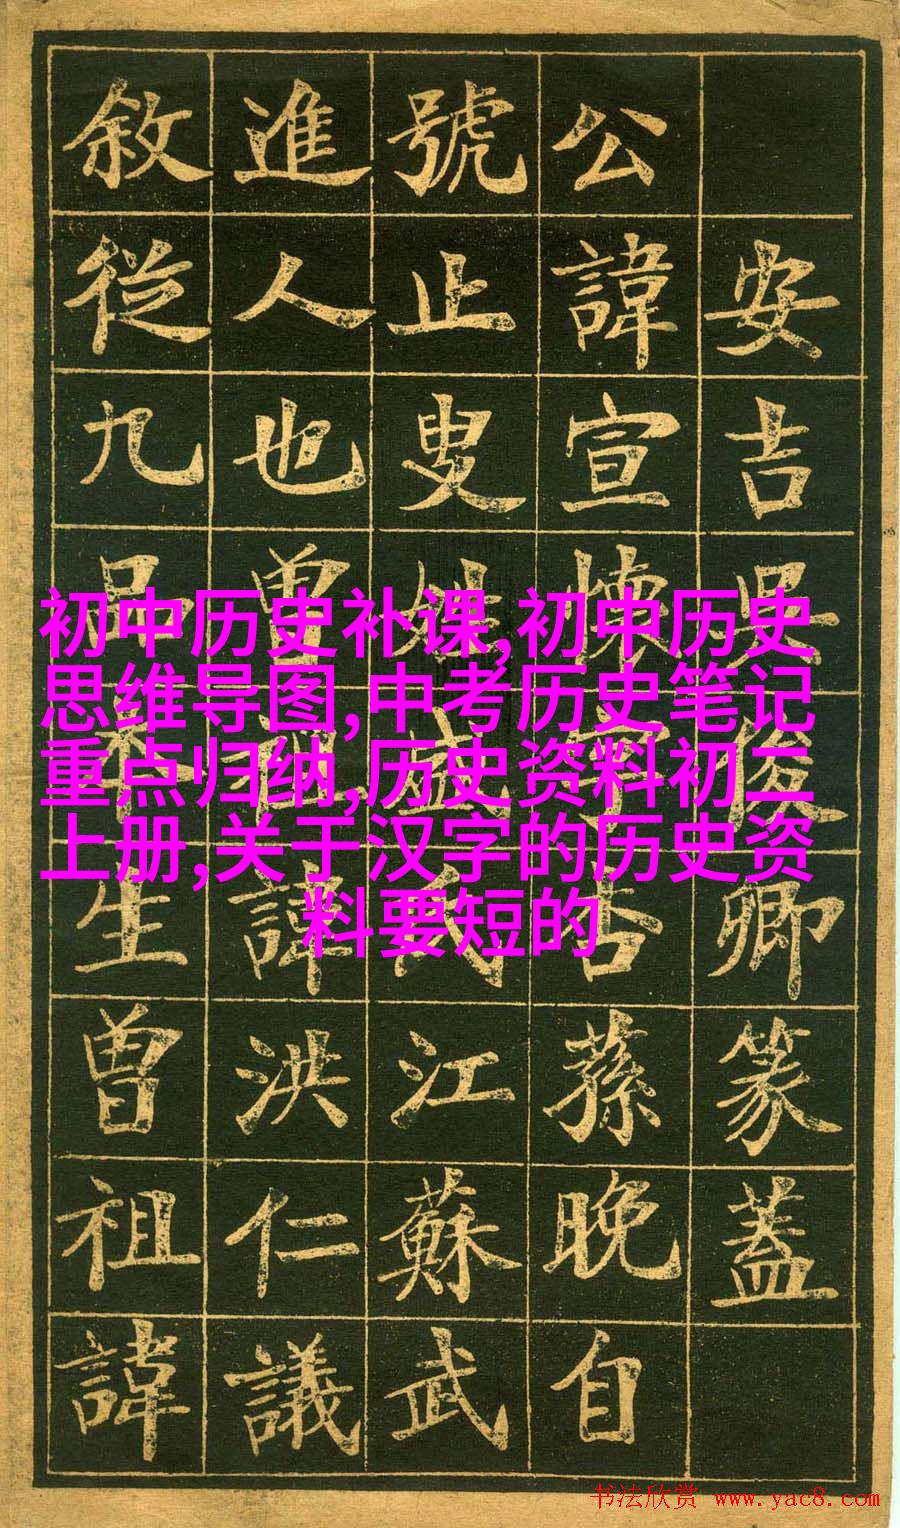 安吉吳俊卿篆蓋
公諱宣懷字杏蓀晚自
號止叟姓盛氏江蘇武
進人也曾祖諱洪仁議
敘從九品本生曾祖諱
初中历史补课,初中历史
思维导图,中考历史笔记
重点归纳,历史资料初二
上册,关于汉字的历史资
料要短的
书法欣赏 www.yac8.com